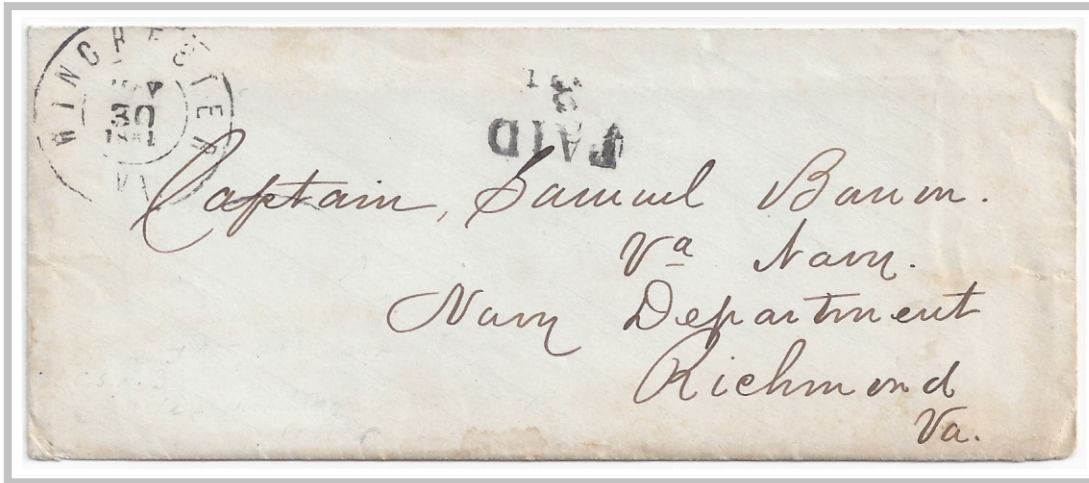 WINCHESTER
30
1861
VA
PAID
3
Captain, Samuel Barron.
Va Navy.
Navy Department
Richmond
Va.